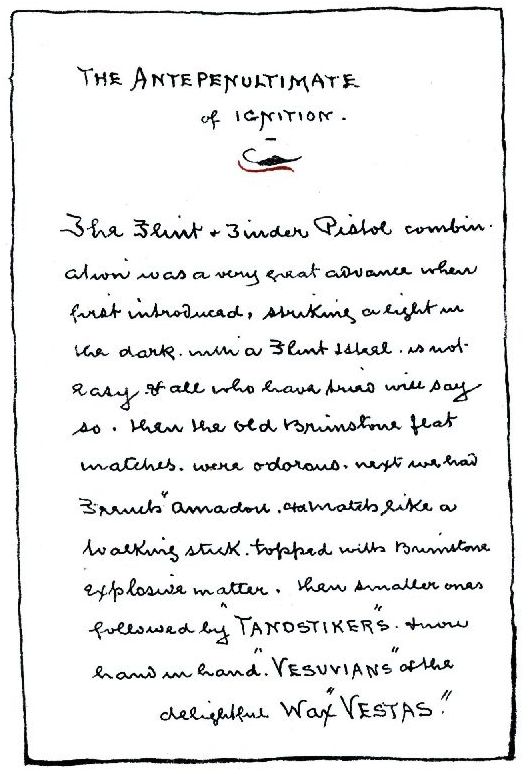 THE ANTEPENULTIMATE
of IGNITION.
The Flint & Tinder Pistol combin-
ation was a very great advance when
first introduced, striking a light in
the dark. with a Flint & Steel. is not
easy & all who have tried will say
so. then the old Brimstone flat
matches. were odorous. next we had
French "Amadou. a match like a
walking stick. topped with Brimstone
explosive matter. then smaller ones
followed by "TANDSTIKERS". & now
hand in hand. "VESUVIANS" & the
delightful Wax "VESTAS."